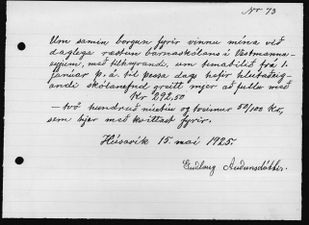 Nr 73
Um samin borgun fyrir vinnu mína við
daglega ræstun barnaskólans í Vestmanna-
eyjum, með tilheyrandi, um tímabilið frá 1.
janúar þ. á. til þessa dags hefir hlutaðeig-
andi skólanefnd greitt mjer að fullu með
Kr 292,50
– tvö hundruð níutíu og tveimur 50/100 Kr,
sem hjer með kvittast fyrir.
Húsavík 15. maí 1925.
Guðlaug Auðunsdóttir.